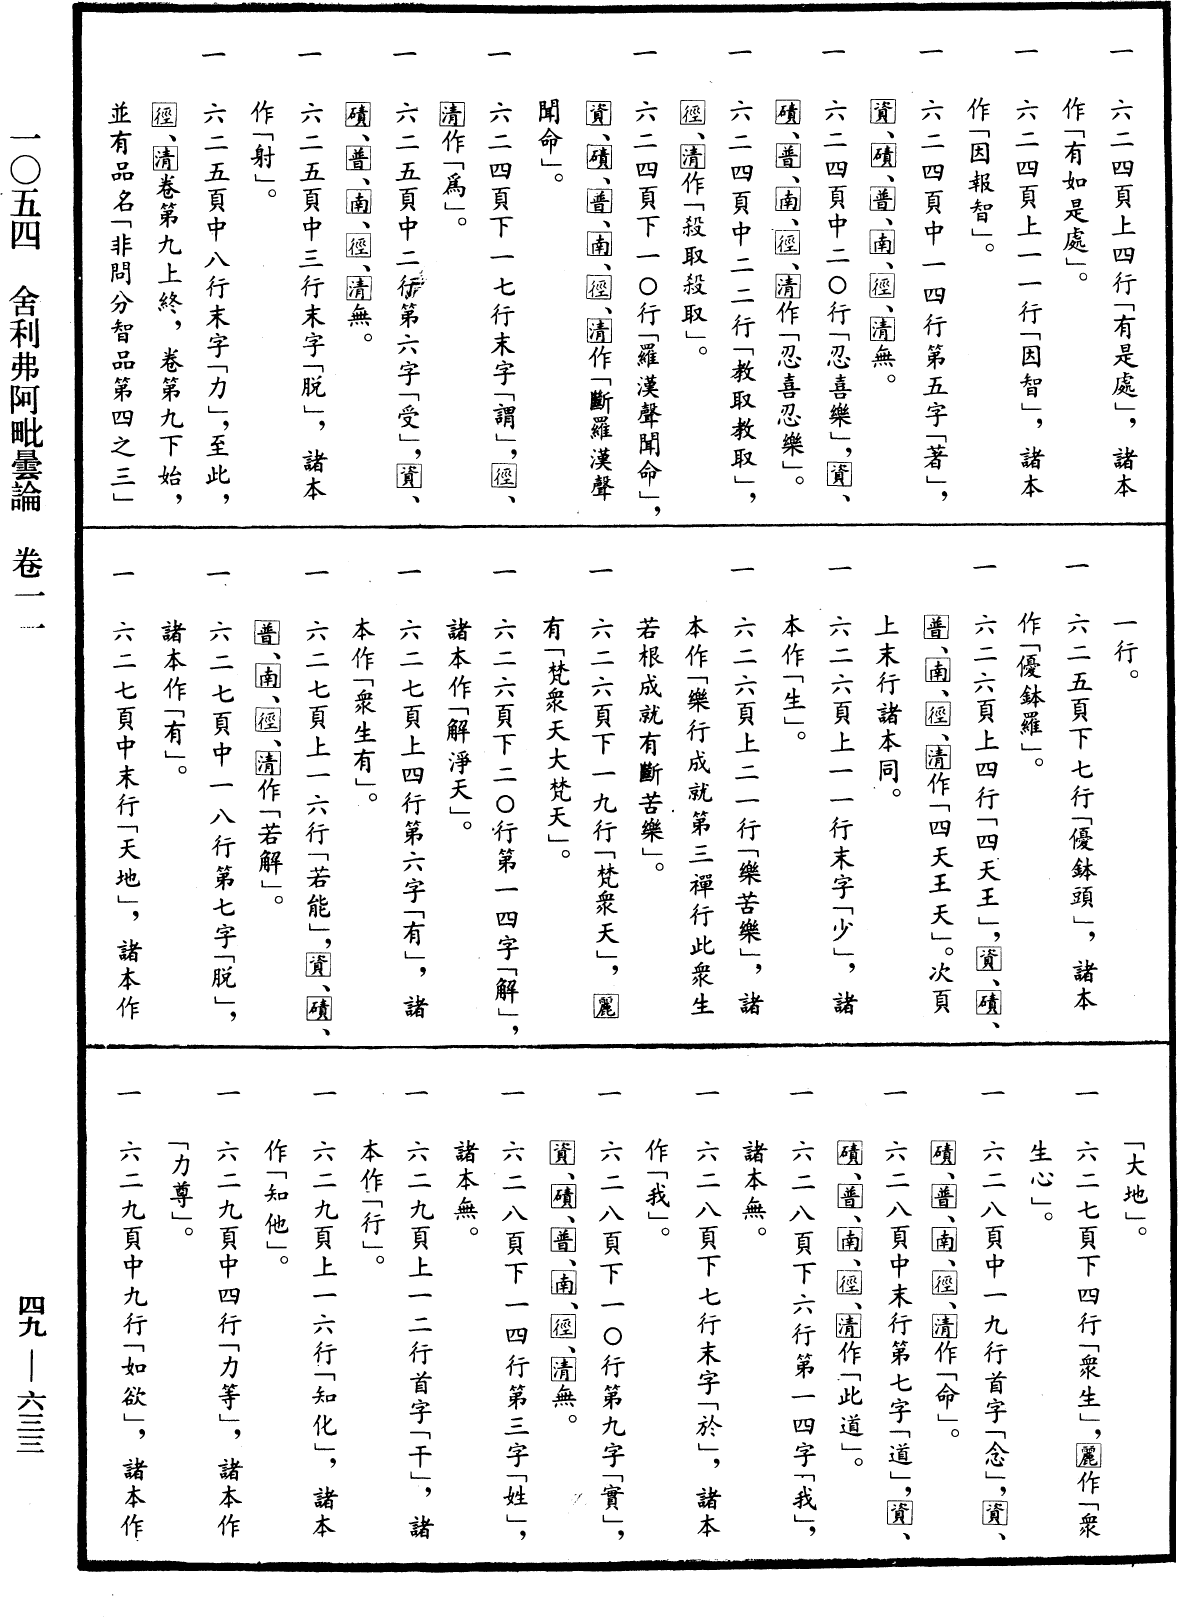 一　六二四頁上四行「有是處」，諸本
作「有如是處」。
一　六二四頁上一一行「因智」，諸本
作「因報智」。
一　六二四頁中一四行第五字「著」，
資、磧、普、南、徑、清無。
一　六二四頁中二〇行「忍喜樂」，資、
磧、普、南、徑、清作「忍喜忍樂」。
一　六二四頁中二二行「教取教取」，
徑、清作「殺取殺取」。
一　六二四頁下一〇行「羅漢聲聞命」，
資、磧、普、南、徑、清作「斷羅漢聲
聞命」。
一　六二四頁下一七行末字「謂」，徑、
清作「爲」。
一　六二五頁中二行第六字「受」，資、
磧、普、南、徑、清無。
一　六二五頁中三行末字「脱」，諸本
作「射」。
一　六二五頁中八行末字「力」，至此，
徑、清卷第九上終，卷第九下始，
並有品名「非問分智品第四之三」
一行。
一　六二五頁下七行「優鉢頭」，諸本
作「優鉢羅」。
一　六二六頁上四行「四天王」，資、磧、
普、南、徑、清作「四天王天」。次頁
上末行諸本同。
一　六二六頁上一一行末字「少」，諸
本作「生」。
一　六二六頁上二一行「樂苦樂」，諸
本作「樂行成就第三禪行此衆生
若根成就有斷苦樂」。
一　六二六頁下一九行「梵衆天」，麗
有「梵衆天大梵天」。
一　六二六頁下二〇行第一四字「解」，
諸本作「解淨天」。
一　六二七頁上四行第六字「有」，諸
本作「衆生有」。
一　六二七頁上一六行「若能」，資、磧、
普、南、徑、清作「若解」。
一　六二七頁中一八行第七字「脱」，
諸本作「有」。
一　六二七頁中末行「天地」，諸本作
「大地」。
一　六二七頁下四行「衆生」，麗作「衆
生心」。
一　六二八頁中一九行首字「念」，資、
磧、普、南、徑、清作「命」。
一　六二八頁中末行第七字「道」，資、
磧、普、南、徑、清作「此道」。
一　六二八頁下六行第一四字「我」，
諸本無。
一　六二八頁下七行末字「於」，諸本
作「我」。
一　六二八頁下一〇行第九字「實」，
資、磧、普、南、徑、清無。
一　六二八頁下一四行第三字「姓」，
諸本無。
一　六二九頁上一二行首字「干」，諸
本作「行」。
一　六二九頁上一六行「知化」，諸本
作「知他」。
一　六二九頁中四行「力等」，諸本作
「力尊」。
一　六二九頁中九行「如欲」，諸本作
一〇五四　舍利弗阿毗曇論　卷一一
四九—六三三